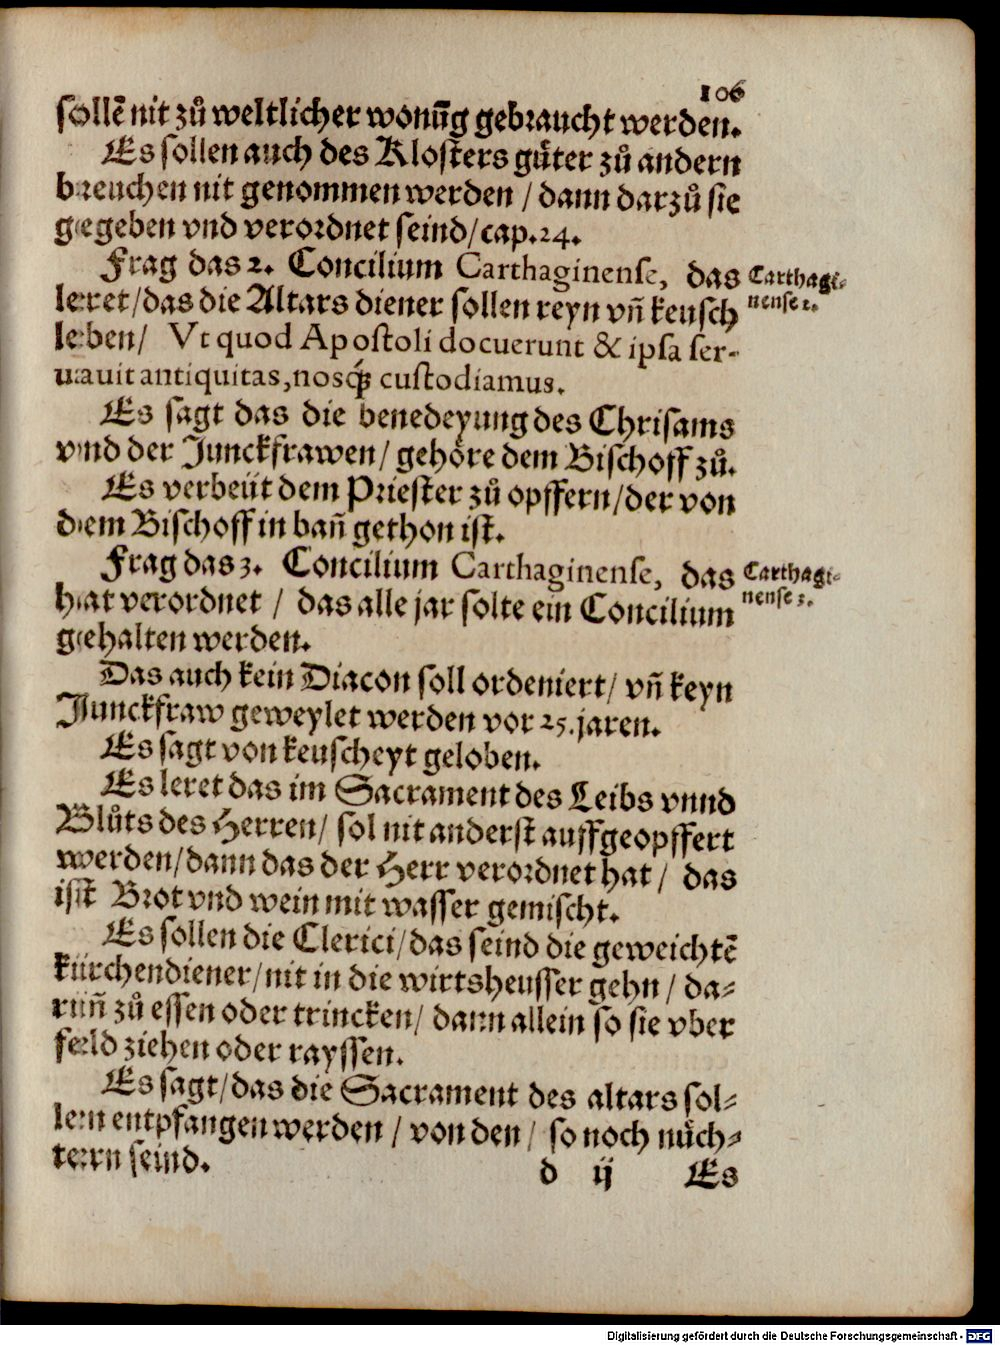 106
sollē nit zů weltlicher wonūg gebraucht werden.
Es sollen auch des Klosters gůter zů andern
breuchen nit genommen werden / dann darzů sie
gegeben vnd verordnet seind / cap. 24.
Frag das 2. Concilium Carthaginense, das
Carthagi-
leret / das die Altars diener sollen reyn vñ keusch
nense 2.
leben / Vt quod Apostoli docuerunt & ipsa ser-
uauit antiquitas, nosq́ȝ custodiamus.
Es sagt das die benedeyung des Chrisams
vnd der Junckfrawen / gehöre dem Bischoff zů.
Es verbeüt dem Priester zů opffern / der von
dem Bischoff in bañ gethon ist.
Frag das 3. Concilium Carthaginense, das
Carthagi-
hat verordnet / das alle jar solte ein Concilium
nense 3.
gehalten werden.
Das auch kein Diacon soll ordeniert / vñ keyn
Junckfraw geweylet werden vor 25. jaren.
Es sagt von keuscheyt geloben.
Es leret das im Sacrament des Leibs vnnd
Blůts des Herren / sol nit anderst auffgeopffert
werden / dann das der Herr verordnet hat / das
ist Brot vnd wein mit wasser gemischt.
Es sollen die Clerici / das seind die geweichtē
kirchendiener / nit in die wirtsheusser gehn / da-
riñ zů essen oder trincken / dann allein so sie vber
feld ziehen oder rayssen.
Es sagt / das die Sacrament des altars sol-
len entpfangen werden / von den / so noch nüch-
tern seind.
d ij Es
Digitalisierung gefördert durch die Deutsche Forschungsgemeinschaft - DFG